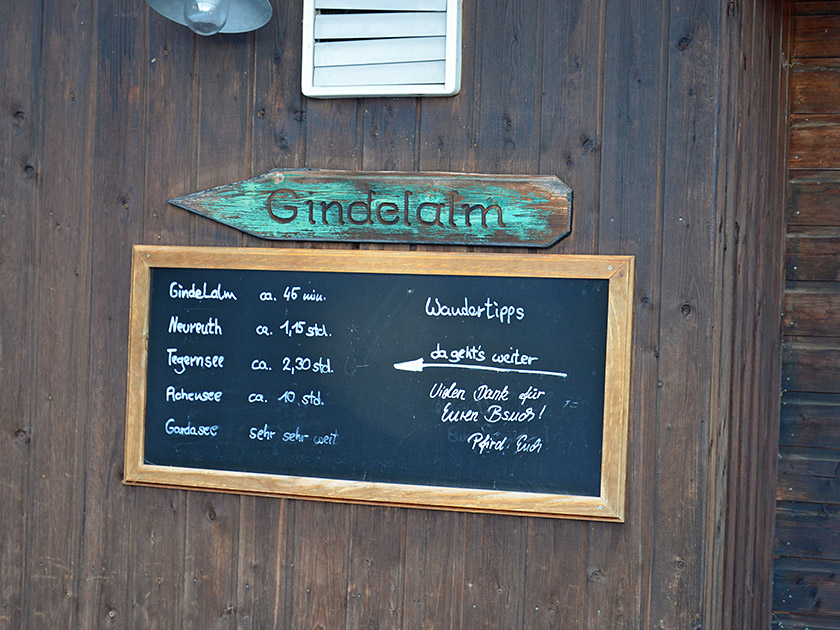 Gindelalm
Gindelalm ca. 45 min.
Neureuth ca. 1,15 std.
Tegernsee ca. 2,30 std.
Achensee ca. 10 std.
Gardasee sehr sehr weit
Wandertipps
da geht's weiter
Vielen Dank für
Euren Bsuch!
Pfird. Euch